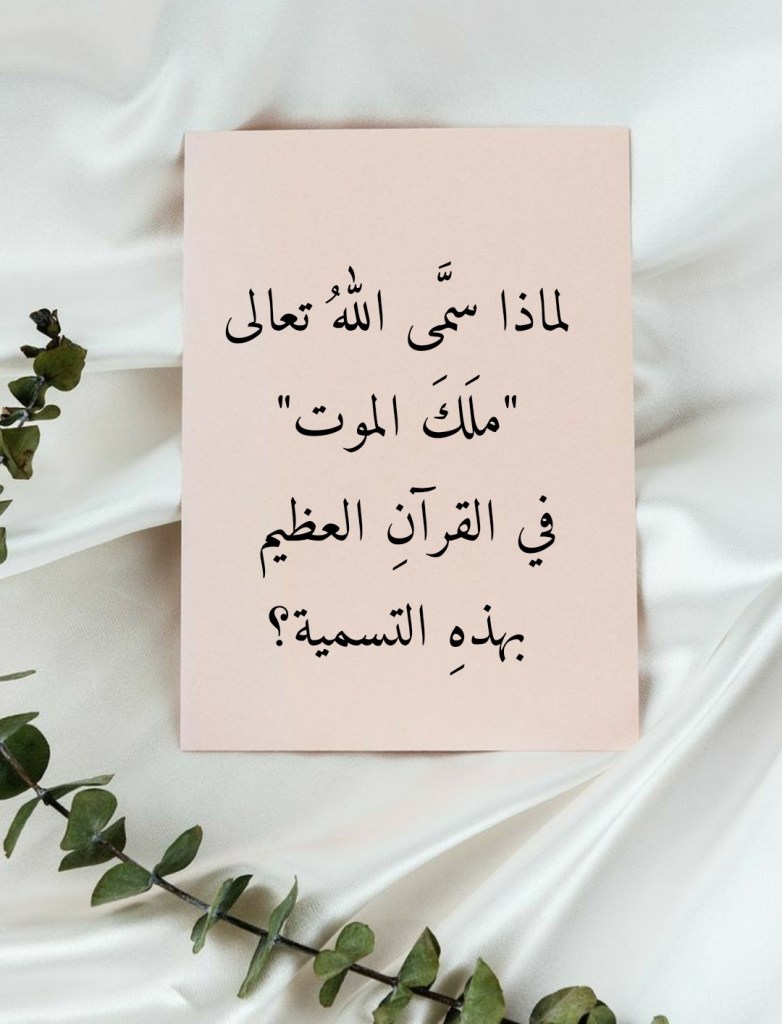 لماذا سمَّى اللهُ تعالى
"ملَكَ الموت"
في القرآنِ العظيم
بهذهِ التسمية؟